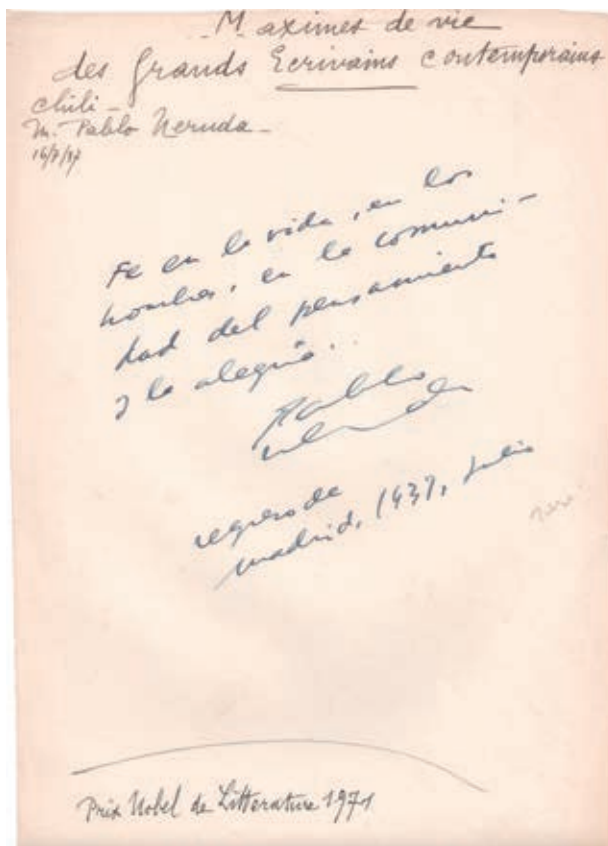 Maximes de vie
des Grands Ecrivains contemporains
Chili -
M. Pablo Neruda -
16/7/37
Fe en la vida, en los
hombres, en la comuni-
dad del pensamiento
y la alegría..
Pablo
Neruda
regreso de
madrid, 1937, Julio
Prix Nobel de Litterature 1971